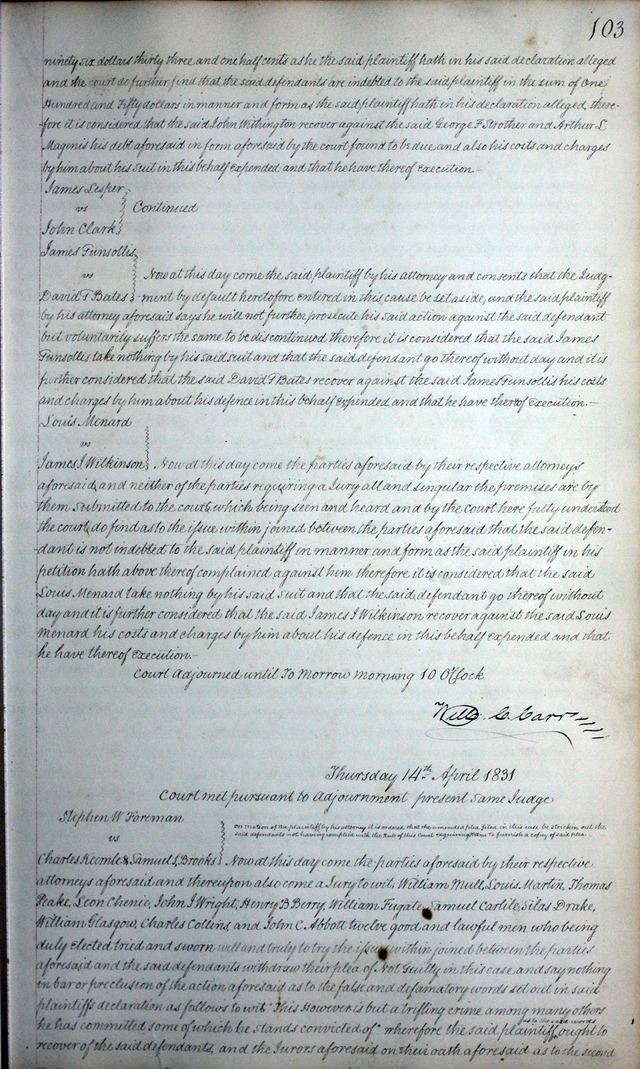 103
ninety six dollars thirty three and one half cents as he the said plaintiff hath in his said declaration alleged
and the court do further find that the said defendants are indebted to the said plaintiff in the sum of One
Hundred and Fifty dollars in manner and form as the said plaintiff hath in his declaration alleged, there-
fore it is considered that the said John Withington recover against the said George F. Strother and Arthur L
Magenis his debt aforesaid in form aforesaid by the court found to be due and also his costs and charges
by him about his suit in this behalf expended and that he have thereof execution.-
James Lesper
vs Continued
John Clark
James Funsollis
vs Now at this day come the said plaintiff by his attorney and consents that the Judg-
David T Bates ment by default heretofore entered in this cause be set aside, and the said plaintiff
by his attorney aforesaid says he will not further prosecute his said action against the said defendant
but voluntarily suffers the same to be discontinued therefore it is considered that the said James
Funsollis take nothing by his said suit and that the said defendant go thereof without day and it is
further considered that the said David T Bates recover against the said James Funsollis his costs
and charges by him about his defence in this behalf expended and that he have thereof execution.-
Louis Menard
vs
James J Wilkinson Now at this day come the parties aforesaid by their respective attorneys
aforesaid, and neither of the parties requiring a Jury all and singular the premises are by
them submitted to the court, which being seen and heard and by the court here fully understood
the court, do find as to the issue within joined between the parties aforesaid that the said defen-
-dant is not indebted to the said plaintiff in manner and form as the said plaintiff in his
petition hath above thereof complained against him therefore it is considered that the said
Louis Menard take nothing by his said suit and that the said defendant go thereof without
day and it is further considered that the said James J Wilkinson recover against the said Louis
Menard his costs and charges by him about his defence in this behalf expended and that
he have thereof execution.-
Court Adjourned until To Morrow morning 10 O'Clock
Will. C. Carr
Thursday 14th April 1831
Court met pursuant to adjournment present same Judge
Stephen W Foreman
vs on motion of the plaintiff by his attorney it is ordered that the amended plea filed in this case be stricken out the
said defendants not having complied with the Rule of this Court requiring them to furnish a copy of said plea
Charles Keemle & Samuel S Brooks Now at this day come the parties aforesaid by their respective
attorneys aforesaid and thereupon also come a Jury to wit, William Mull, Louis Martin, Thomas
Flake, Leon Chenie, John J Wright, Henry B Berry, William Fugate, Samuel Carlile, Silas Drake,
William Glasgow, Charles Collins and John C. Abbott twelve good and lawful men who being
duly elected tried and sworn well and truly to try the issue within joined between the parties
aforesaid and the said defendants withdraw their plea of Not Guilty in this case, and say nothing
in bar or preclusion of the action aforesaid as to the false and defamatory words set out in said
plaintiffs declaration as follows to wit "This However is but a trifling crime among many others
he has committed some of which he stands convicted of" wherefore the said plaintiff as to the said words ought to
recover of the said defendants, and the Jurors aforesaid on their oath aforesaid as to the second